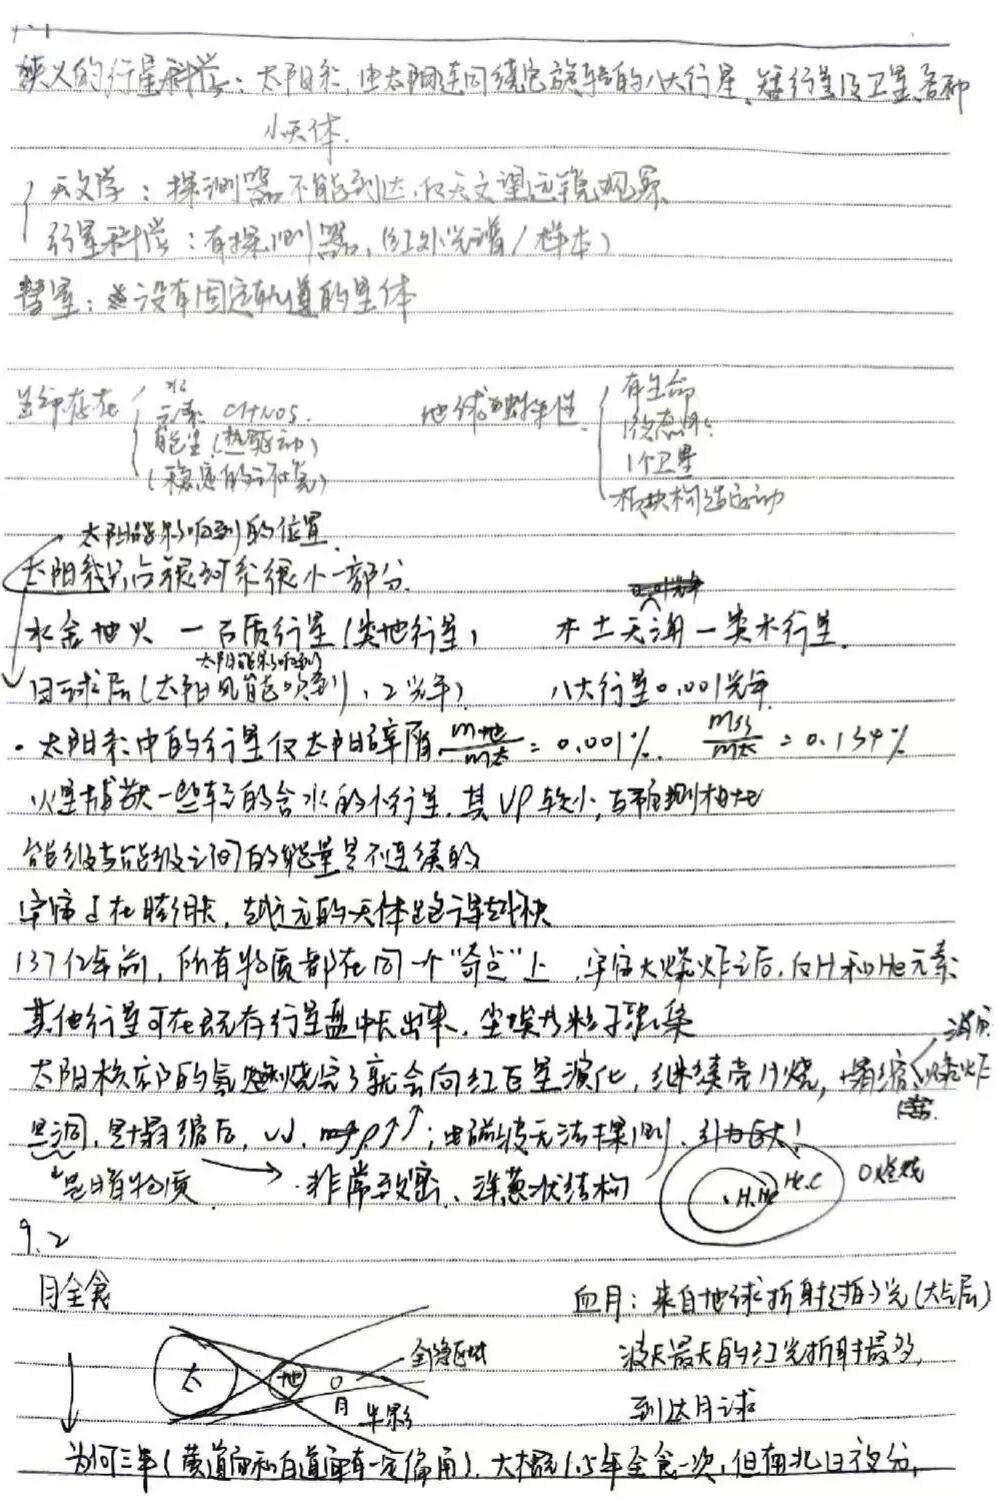 狭义的行星科学：太阳系，由太阳连同绕它旋转的八大行星、矮行星及卫星、各种
小天体.
天文学：探测器不能到达，仅天文望远镜观察.
行星科学：有探测器，(红外光谱/样本)
彗星：没有固定轨道的星体
生命存在
水
元素 CHNOS.
能量(热驱动)
(稳定的环境)
地球独特性
有生命
液态水
1个卫星
板块构造运动
太阳能影响到的位置
太阳系只占银河系很小一部分.
水金地火 — 石质行星(类地行星)
木土天海 — 类木行星.
太阳能影响到
日球层(太阳风能吹到)，2光年)
八大行星0.001光年
· 太阳系中的行星仅太阳碎屑 m地/m太 = 0.001%. = 0.134%
火星捕获一些轻的含水的小行星. 其VP较小,
能级与能级之间的能量是不连续的
宇宙正在膨胀，越远的天体跑得越快
137亿年前，所有物质都在同一个"奇点"上，宇宙大爆炸之后，仅H和He元素
其他行星可在既存行星盘中长出来，尘埃形粒子聚集
太阳核部的氦燃烧完了就会向红巨星演化，继续壳H烧，坍缩
爆炸
黑洞，是塌缩后，V↓, m↑ρ↑↑；电磁波无法探测，引力巨大!
是暗物质
非常致密、洋葱状结构
H.He
He.C
O燃烧
9.2
月全食
血月：来自地球折射过的光(大气层)
太
地
月
全食区域
半影
波长最大的红光折射最多,
到达月球
为何三年(黄道面和白道面有一定偏角). 大概1.5年全食一次，但南北日夜分,